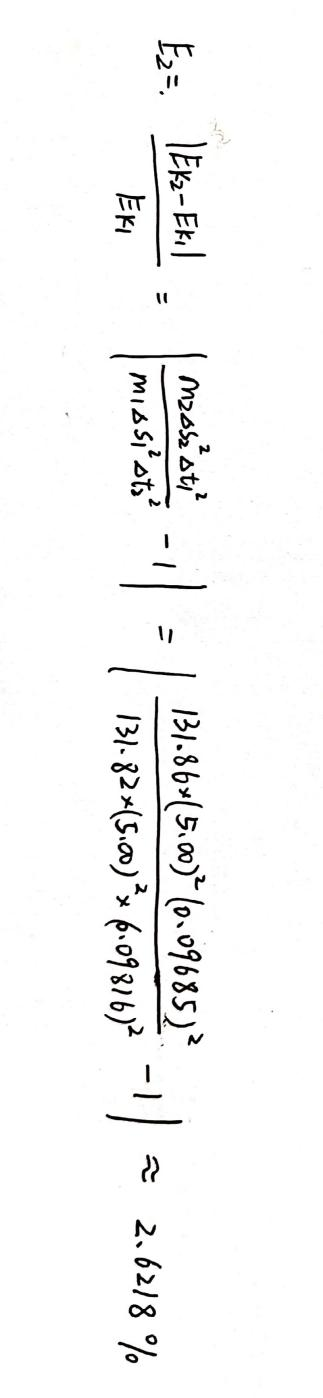 E₂ = \frac{|E_{K2} - E_{K1}|}{E_{K1}} = \left| \frac{m_2 Δs_2^2 Δt_1^2}{m_1 Δs_1^2 Δt_2^2} - 1 \right| = \left| \frac{131.86×(5.00)^2 (0.09685)^2}{131.82×(5.00)^2×(0.09816)^2} - 1 \right| ≈ 2.6218%